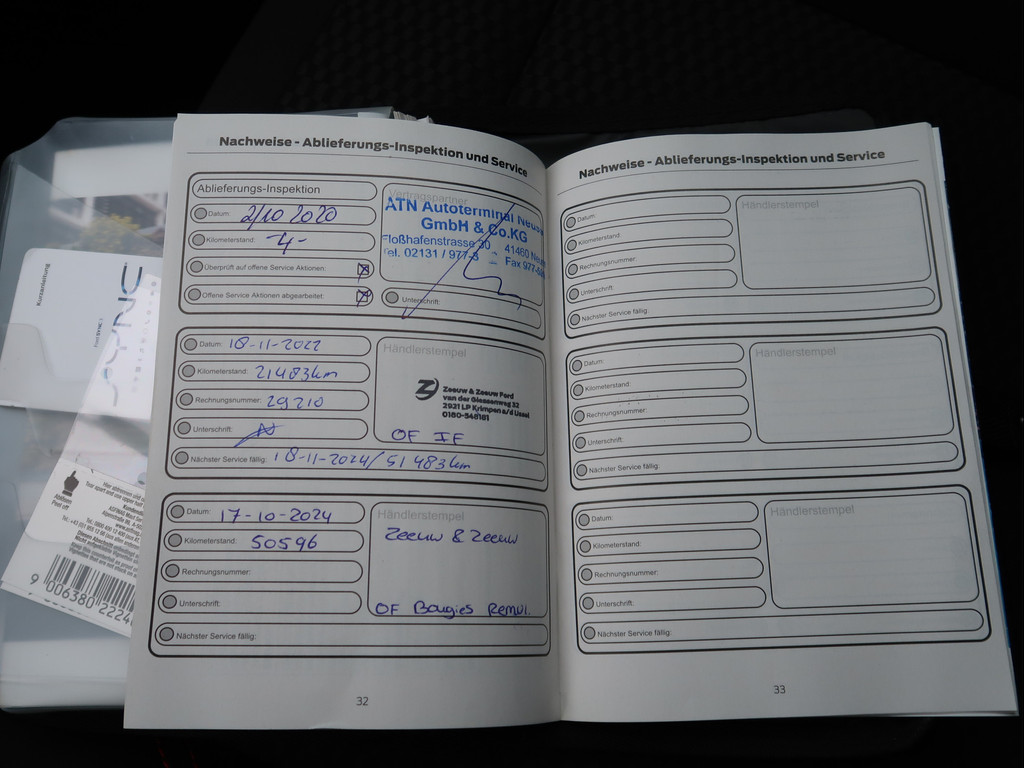 Nachweise - Ablieferungs-Inspektion und Service
Ablieferungs-Inspektion
Datum: 2/10 2020
Kilometerstand: 4-
Überprüft auf offene Service Aktionen:
Offene Service Aktionen abgearbeitet:
Vertragspartner
ATN Autoterminal Neuss
GmbH & Co.KG
Floßhafenstrasse 30 - 41460
Tel. 02131 / 977- Fax
Unterschrift:
Datum: 18-11-2022
Kilometerstand: 21483km
Rechnungsnummer: 29210
Unterschrift:
Nächster Service fällig: 18-11-2024/51483km
Händlerstempel
Zeeuw & Zeeuw Ford
van der Giessenweg 32
2921 LP Krimpen a/d IJssel
0180-548181
OF IF
Datum: 17-10-2024
Kilometerstand: 50596
Rechnungsnummer:
Unterschrift:
Nächster Service fällig:
Händlerstempel
Zeeuw & Zeeuw
OF Bougies Remvl.
32
Nachweise - Ablieferungs-Inspektion und Service
Datum:
Kilometerstand:
Rechnungsnummer:
Unterschrift:
Nächster Service fällig:
Händlerstempel
Datum:
Kilometerstand:
Rechnungsnummer:
Unterschrift:
Nächster Service fällig:
Händlerstempel
Datum:
Kilometerstand:
Rechnungsnummer:
Unterschrift:
Nächster Service fällig:
Händlerstempel
33
Kurzanleitung
SYNC
Abziehen
Peel off
9 006380 2224